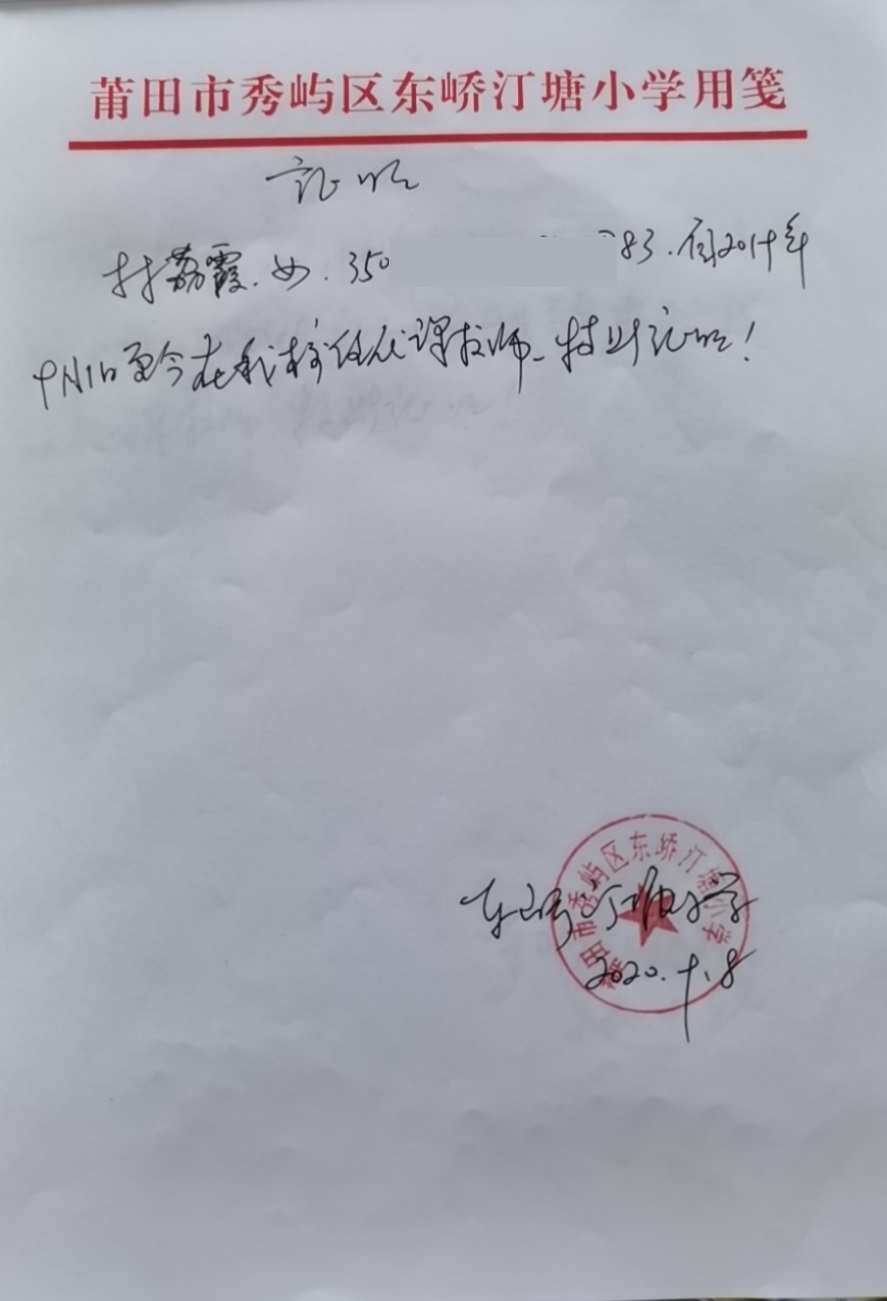 莆田市秀屿区东峤汀塘小学用笺
证明
林荔霞.女.350 283.自2019年
9月1日至今在我校任代课教师.特此证明!
莆田市秀屿区东峤汀塘小学
东峤汀塘小学
2020.9.8